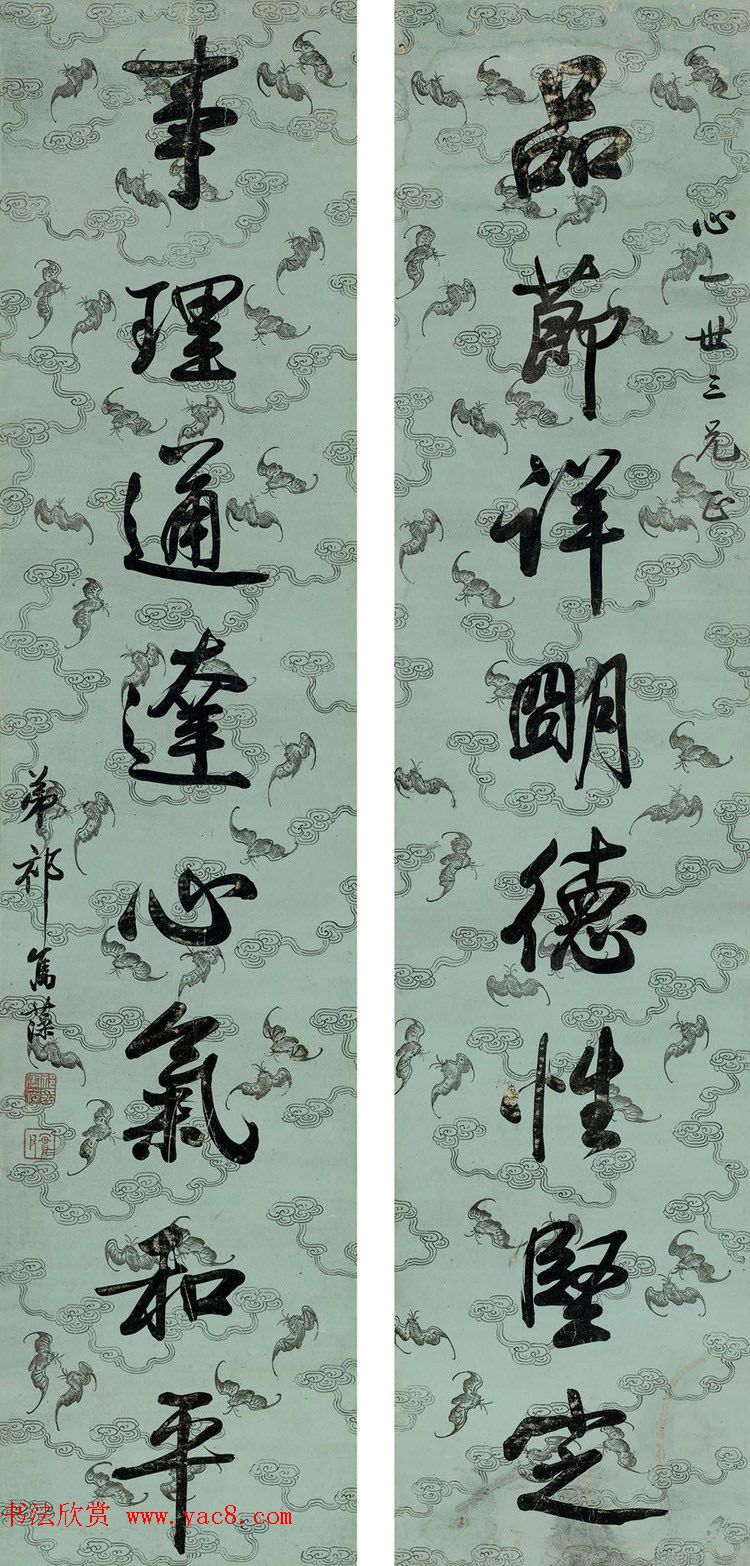 心一世三兄正
品節詳明德性堅定
事理通達心氣和平
弟祁寯藻
书法欣赏 www.yac8.com